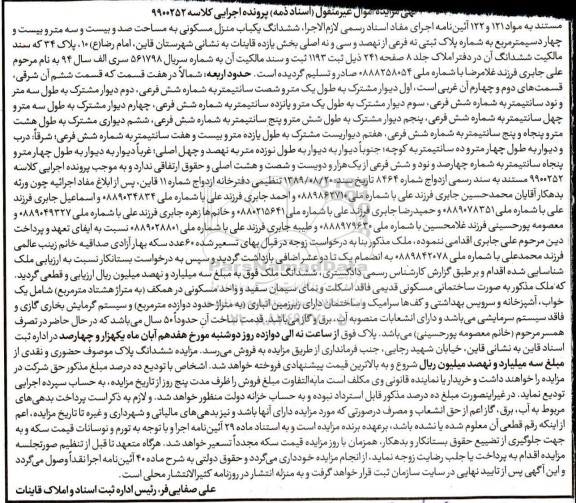 آگهی مزایده اموال غیرمنقول (اسناد ذمه) پرونده اجرایی کلاسه ۹۹۰۰۲۵۲
مستند به مواد ۱۲۱ و ۱۲۲ آئین‌نامه اجرای مفاد اسناد رسمی لازم‌الاجرا، ششدانگ یکباب منزل مسکونی به مساحت صد و بیست و سه متر و بیست و
چهار دسیمترمربع به شماره پلاک ثبتی نه فرعی از نهصد و سی و نه اصلی بخش یازده قاینات به نشانی شهرستان قاین، امام رضا(ع) ۱۰، پلاک ۳۴ که سند
مالکیت ششدانگ آن در دفتر املاک جلد ۸ صفحه ۲۴۱ ذیل ثبت ۱۱۹۳ ثبت و سند مالکیت آن به شماره سریال ۵۶۱۷۹۸ سری الف سال ۹۴ به نام مرحوم
علی جابری فرزند غلامرضا با شماره ملی ۰۸۸۸۲۵۸۰۵۴ صادر و تسلیم گردیده است. حدود اربعه: شمالاً در هفت قسمت که قسمت ششم آن شرقی،
قسمت‌های دوم و چهارم آن غربی است، اول دیوار مشترک به طول یک متر و شصت سانتیمتر به شماره شش فرعی، دوم دیوار مشترک به طول سه متر
و نود سانتیمتر به شماره شش فرعی، سوم دیوار مشترک به طول یک متر و پانزده سانتیمتر به شماره شش فرعی، چهارم دیوار مشترک به طول سه متر و
چهل سانتیمتر به شماره شش فرعی، پنجم دیوار مشترک به طول شش متر و پنج سانتیمتر به شماره شش فرعی، ششم دیواری مشترک به طول هشت
متر و پنجاه و پنج سانتیمتر به شماره شش فرعی، هفتم دیواریست مشترک به طول یازده متر و بیست و هفت سانتیمتر به شماره شش فرعی؛ شرقاً: درب
و دیوار به طول چهار متر و ده سانتیمتر به کوچه؛ جنوباً دیوار به دیوار به طول نوزده متر به نهصد و چهل اصلی؛ غرباً دیوار به دیوار به طول چهار متر و
پنجاه سانتیمتر به شماره چهارصد و نود و شش فرعی از یک‌هزار و دویست و شصت و هشت اصلی و حقوق ارتفاقی ندارد و به موجب پرونده اجرایی کلاسه
۹۹۰۰۲۵۲ مستند به سند رسمی ازدواج شماره ۸۴۶۴ تاریخ سند ۱۳۸۹/۰۸/۲۰ تنظیمی دفترخانه ازدواج شماره ۱۱ قاین، پس از ابلاغ مفاد اجرائیه چون ورثه
بدهکار آقایان محمدحسین جابری فرزند علی با شماره ملی و احمد جابری فرزند علی با شماره ملی ۰۸۸۹۰۳۴۸۳۴ و اسماعیل جابری فرزند
علی با شماره ملی ۰۸۸۹۰۷۸۳۵۱ و حمیدرضا جابری فرزند علی با شماره ملی ۰۸۸۰۲۱۵۶۴۱ و خانم‌ها زهره جابری فرزند علی با شماره ملی ۰۸۸۹۰۴۹۳۲۷ و
معصومه پورحسینی فرزند غلامحسین با شماره ملی و طیبه جابری فرزند علی با شماره ملی ۰۸۸۹۰۲۸۸۰۱ نسبت به ایفای تعهد و پرداخت
دین مرحوم علی جابری اقدامی ننموده، ملک مذکور بنا به درخواست زوجه در قبال بهای تسعیر شده ۶۰ عدد سکه بهار آزادی صداقیه خانم زینب عالمی
فرزند محمدعلی با شماره ملی ۰۸۸۹۸۴۲۰۷۸ به انضمام یک تا دو عشر اضافی بازداشت گردید و سپس به درخواست بستانکار نسبت به ارزیابی ملک
شناسایی شده اقدام و بر طبق گزارش کارشناس رسمی دادگستری ششدانگ ملک فوق به مبلغ سه میلیارد و نهصد میلیون ریال ارزیابی و قطعی گردید.
که ملک مذکور به صورت ساختمانی مسکونی قدیمی فاقد اسکلت و نمای سیمان سفید و واحد مسکونی در همکف (به متراژ هشتاد مترمربع) شامل یک
خواب، آشپزخانه و سرویس بهداشتی و کف‌ها سرامیک و ساختمان دارای زیرزمین انباری (به متراژ حدود دوازده مترمربع) و سیستم گرمایش بخاری گازی و
فاقد سیستم سرمایشی می‌باشد و دارای انشعابات منصوبه آب، برق و گاز می‌باشد. قدمت ساخت آن حدوداً ۵۰ سال می‌باشد که در حال حاضر در تصرف
همسر مرحوم (خانم معصومه پورحسینی) می‌باشد. پلاک فوق از ساعت نه الی دوازده روز دوشنبه مورخ هفدهم آبان ماه یکهزار و چهارصد در اداره ثبت
اسناد قاین به نشانی قاین، خیابان شهید رجایی، جنب فرمانداری از طریق مزایده به فروش می‌رسد. مزایده ششدانگ پلاک موصوف حضوری و نقدی از
مبلغ سه میلیارد و نهصد میلیون ریال شروع و به بالاترین قیمت پیشنهادی فروخته خواهد شد. اشخاص با تودیع ده درصد مبلغ مذکور حق شرکت در
مزایده را خواهند داشت و خریدار یا نماینده قانونی وی مکلف است مابه‌التفاوت مبلغ فروش را ظرف مدت پنج روز از تاریخ مزایده، به حساب سپرده اجرایی
تودیع نماید. در غیر اینصورت مبلغ ده درصد مذکور قابل استرداد نبوده و به حساب خزانه دولت منظور خواهد شد. و لازم به ذکر است پرداخت بدهی‌های
مربوط به آب، برق، گاز اعم از حق انشعاب و مصرف در صورتی که مورد مزایده دارای آنها باشد و نیز بدهی‌های مالیاتی و شهرداری و غیره تا تاریخ مزایده، اعم
از اینکه رقم قطعی آن معلوم شده یا نشده باشد، برعهده برنده مزایده است و به استناد ماده ۲۹ آئین‌نامه اجرا و با توجه به تورم و نوسانات قیمت سکه و به
جهت جلوگیری از تضییع حقوق بستانکار و بدهکار، همزمان با روز مزایده قیمت سکه مجدداً تسعیر خواهد شد. هرگاه متعهد تا قبل از تنظیم صورتجلسه
مزایده اقدام به پرداخت یا جلب رضایت زوجه نماید، از انجام مزایده خودداری می‌گردد و حقوق دولتی به شرح ماده ۴۰ آئین‌نامه اجرا نقداً وصول می‌گردد
و این آگهی پس از تایید نهایی در سایت سازمان ثبت قرار خواهد گرفت و به منزله انتشار در روزنامه کثیرالانتشار محلی است.
علی صفایی‌فر، رئیس اداره ثبت اسناد و املاک قاینات